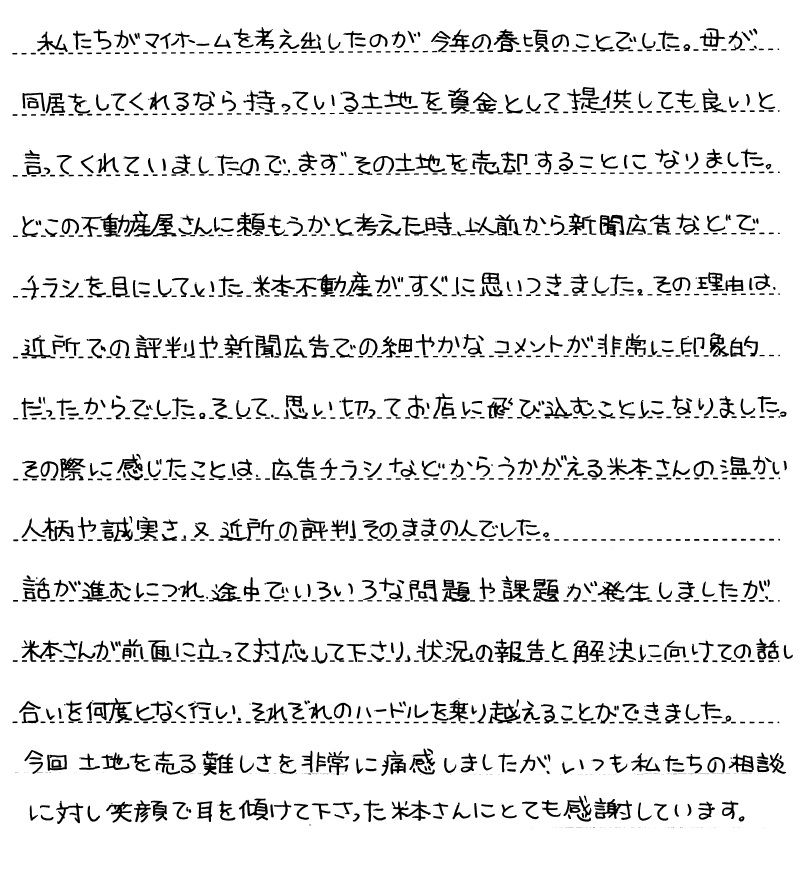 私たちがマイホームを考え出したのが今年の春頃のことでした。母が、
同居をしてくれるなら持っている土地を資金として提供しても良いと
言ってくれていましたので、まずその土地を売却することになりました。
どこの不動産屋さんに頼もうかと考えた時、以前から新聞広告などで
チラシを目にしていた米本不動産がすぐに思いつきました。その理由は、
近所での評判や新聞広告での細やかなコメントが非常に印象的
だったからでした。そして、思い切ってお店に飛び込むことになりました。
その際に感じたことは、広告チラシなどからうかがえる米本さんの温かい
人柄や誠実さ、又近所の評判そのままの人でした。
話が進むにつれ、途中でいろいろな問題や課題が発生しましたが、
米本さんが前面に立って対応して下さり、状況の報告と解決に向けての話し
合いを何度となく行い、それぞれのハードルを乗り越えることができました。
今回土地を売る難しさを非常に痛感しましたが、いつも私たちの相談
に対し笑顔で耳を傾けて下さった米本さんにとても感謝しています。